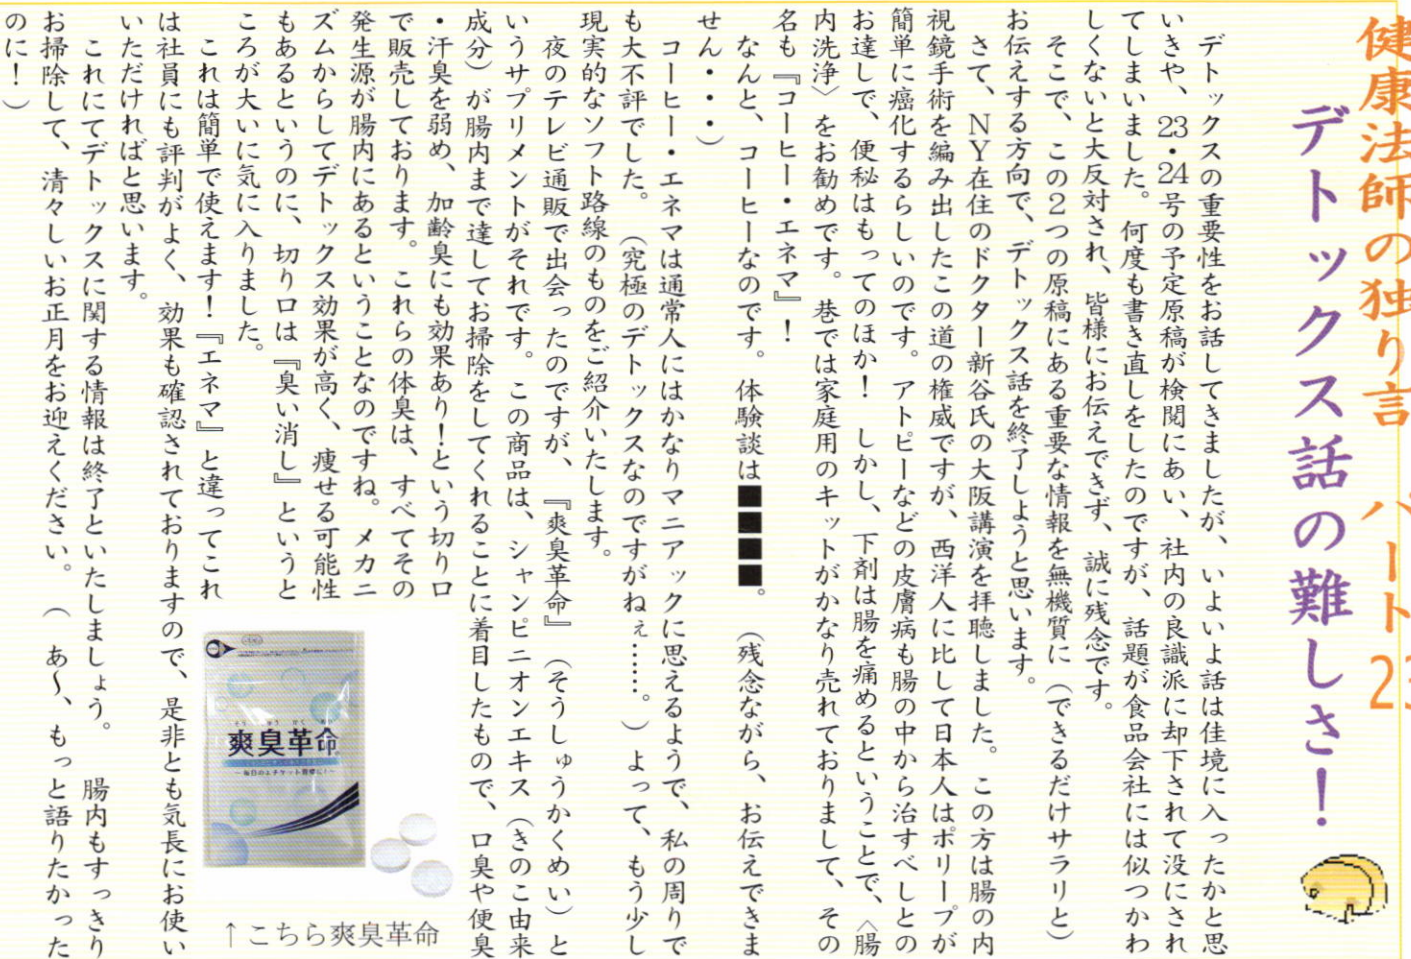 健康法師の独り言 パート23
デトックス話の難しさ！
デトックスの重要性をお話してきましたが、いよいよ話は佳境に入ったかと思
いきや、23・24号の予定原稿が検閲にあい、社内の良識派に却下されて没にされ
てしまいました。何度も書き直しをしたのですが、話題が食品会社には似つかわ
しくないと大反対され、皆様にお伝えできず、誠に残念です。
そこで、この2つの原稿にある重要な情報を無機質に（できるだけサラリと）
お伝えする方向で、デトックス話を終了しようと思います。
さて、NY在住のドクター新谷氏の大阪講演を拝聴しました。この方は腸の内
視鏡手術を編み出したこの道の権威ですが、西洋人に比して日本人はポリープが
簡単に癌化するらしいのです。アトピーなどの皮膚病も腸の中から治すべしとの
お達しで、便秘はもってのほか！しかし、下剤は腸を痛めるということで、〈腸
内洗浄〉をお勧めです。巷では家庭用のキットがかなり売れておりまして、その
名も『コーヒー・エネマ』！
なんと、コーヒーなのです。体験談は■■■■。（残念ながら、お伝えできま
せん・・・）
コーヒー・エネマは通常人にはかなりマニアックに思えるようで、私の周りで
も大不評でした。（究極のデトックスなのですがねぇ……。）よって、もう少し
現実的なソフト路線のものをご紹介いたします。
夜のテレビ通販で出会ったのですが、『爽臭革命』（そうしゅうかくめい）と
いうサプリメントがそれです。この商品は、シャンピニオンエキス（きのこ由来
成分）が腸内まで達してお掃除をしてくれることに着目したもので、口臭や便臭
・汗臭を弱め、加齢臭にも効果あり！という切り口
で販売しております。これらの体臭は、すべてその
発生源が腸内にあるということなのですね。メカニ
ズムからしてデトックス効果が高く、痩せる可能性
もあるというのに、切り口は『臭い消し』というと
ころが大いに気に入りました。
これは簡単で使えます！『エネマ』と違ってこれ
は社員にも評判がよく、効果も確認されておりますので、是非とも気長にお使い
いただければと思います。
これにてデトックスに関する情報は終了といたしましょう。腸内もすっきり
お掃除して、清々しいお正月をお迎えください。（あ〜、もっと語りたかった
のに！）
そう しゅう かく めい
爽臭革命
〜毎日のエチケット習慣に！〜
↑こちら爽臭革命